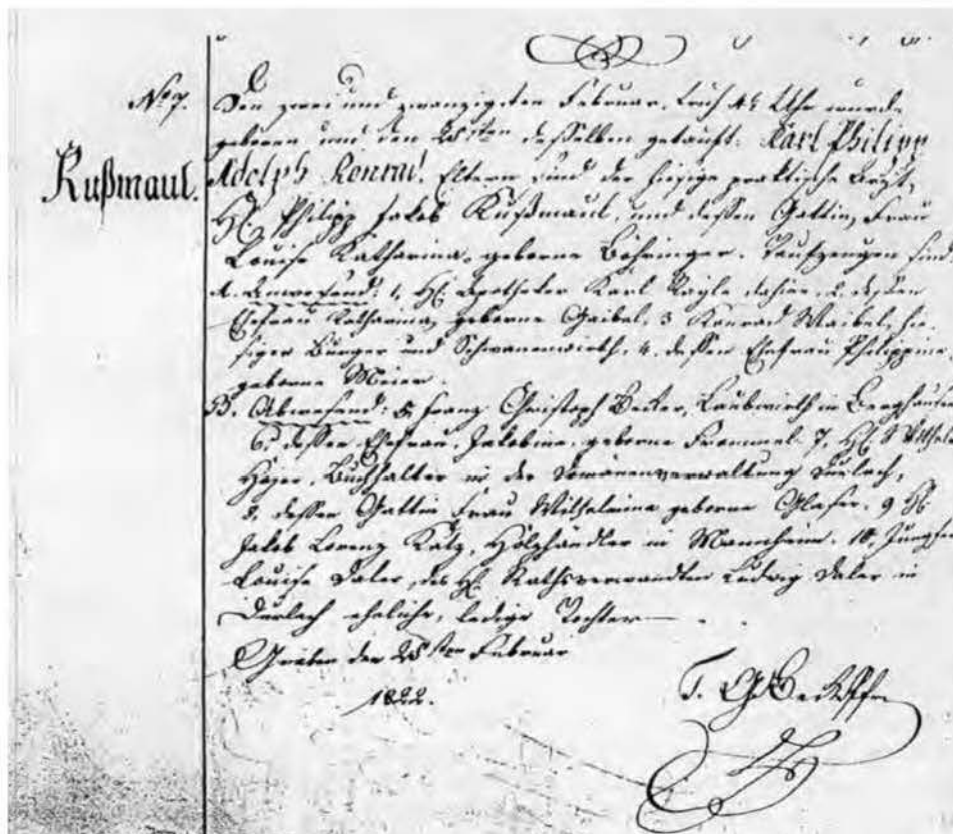 No 7.
Kußmaul.
Den zwei und zwanzigsten Februar, früh 4½ Uhr wurde
geboren und den 28sten desselben getauft: Karl Philipp
Adolph Konrad. Eltern sind der hiesige praktische Arzt,
H. Philipp Jakob Kußmaul, und dessen Gattin, Frau
Louise Katharina, geborne Böhringer. Taufzeugen sind:
A. Anwesend: 1, H. Apotheker Karl dahier, 2. dessen
Ehefrau Katharina, geborne Gaibel, 3 Konrad Waibel, hie-
siger Bürger und Schwanenwirth, 4. dessen Ehefrau Philippine
geborne Meier.
B. Abwesend: 5, Franz Christoph Becker, Laubwirth in Berghausen
6, dessen Ehefrau, Jakobine, geborne Frommel. 7, H.
Buchhalter in der Domänenverwaltung Durlach,
8, dessen Gattin Frau Wilhelmine geborne Glaser. 9 H.
Jakob Lorenz Katz, Holzhändler in Mannheim. 10, Jungfer
Louise Daler, des H. Rathsverwandten Ludwig Daler in
Durlach eheliche, ledige Tochter.
Graben den 28sten Februar
1822.